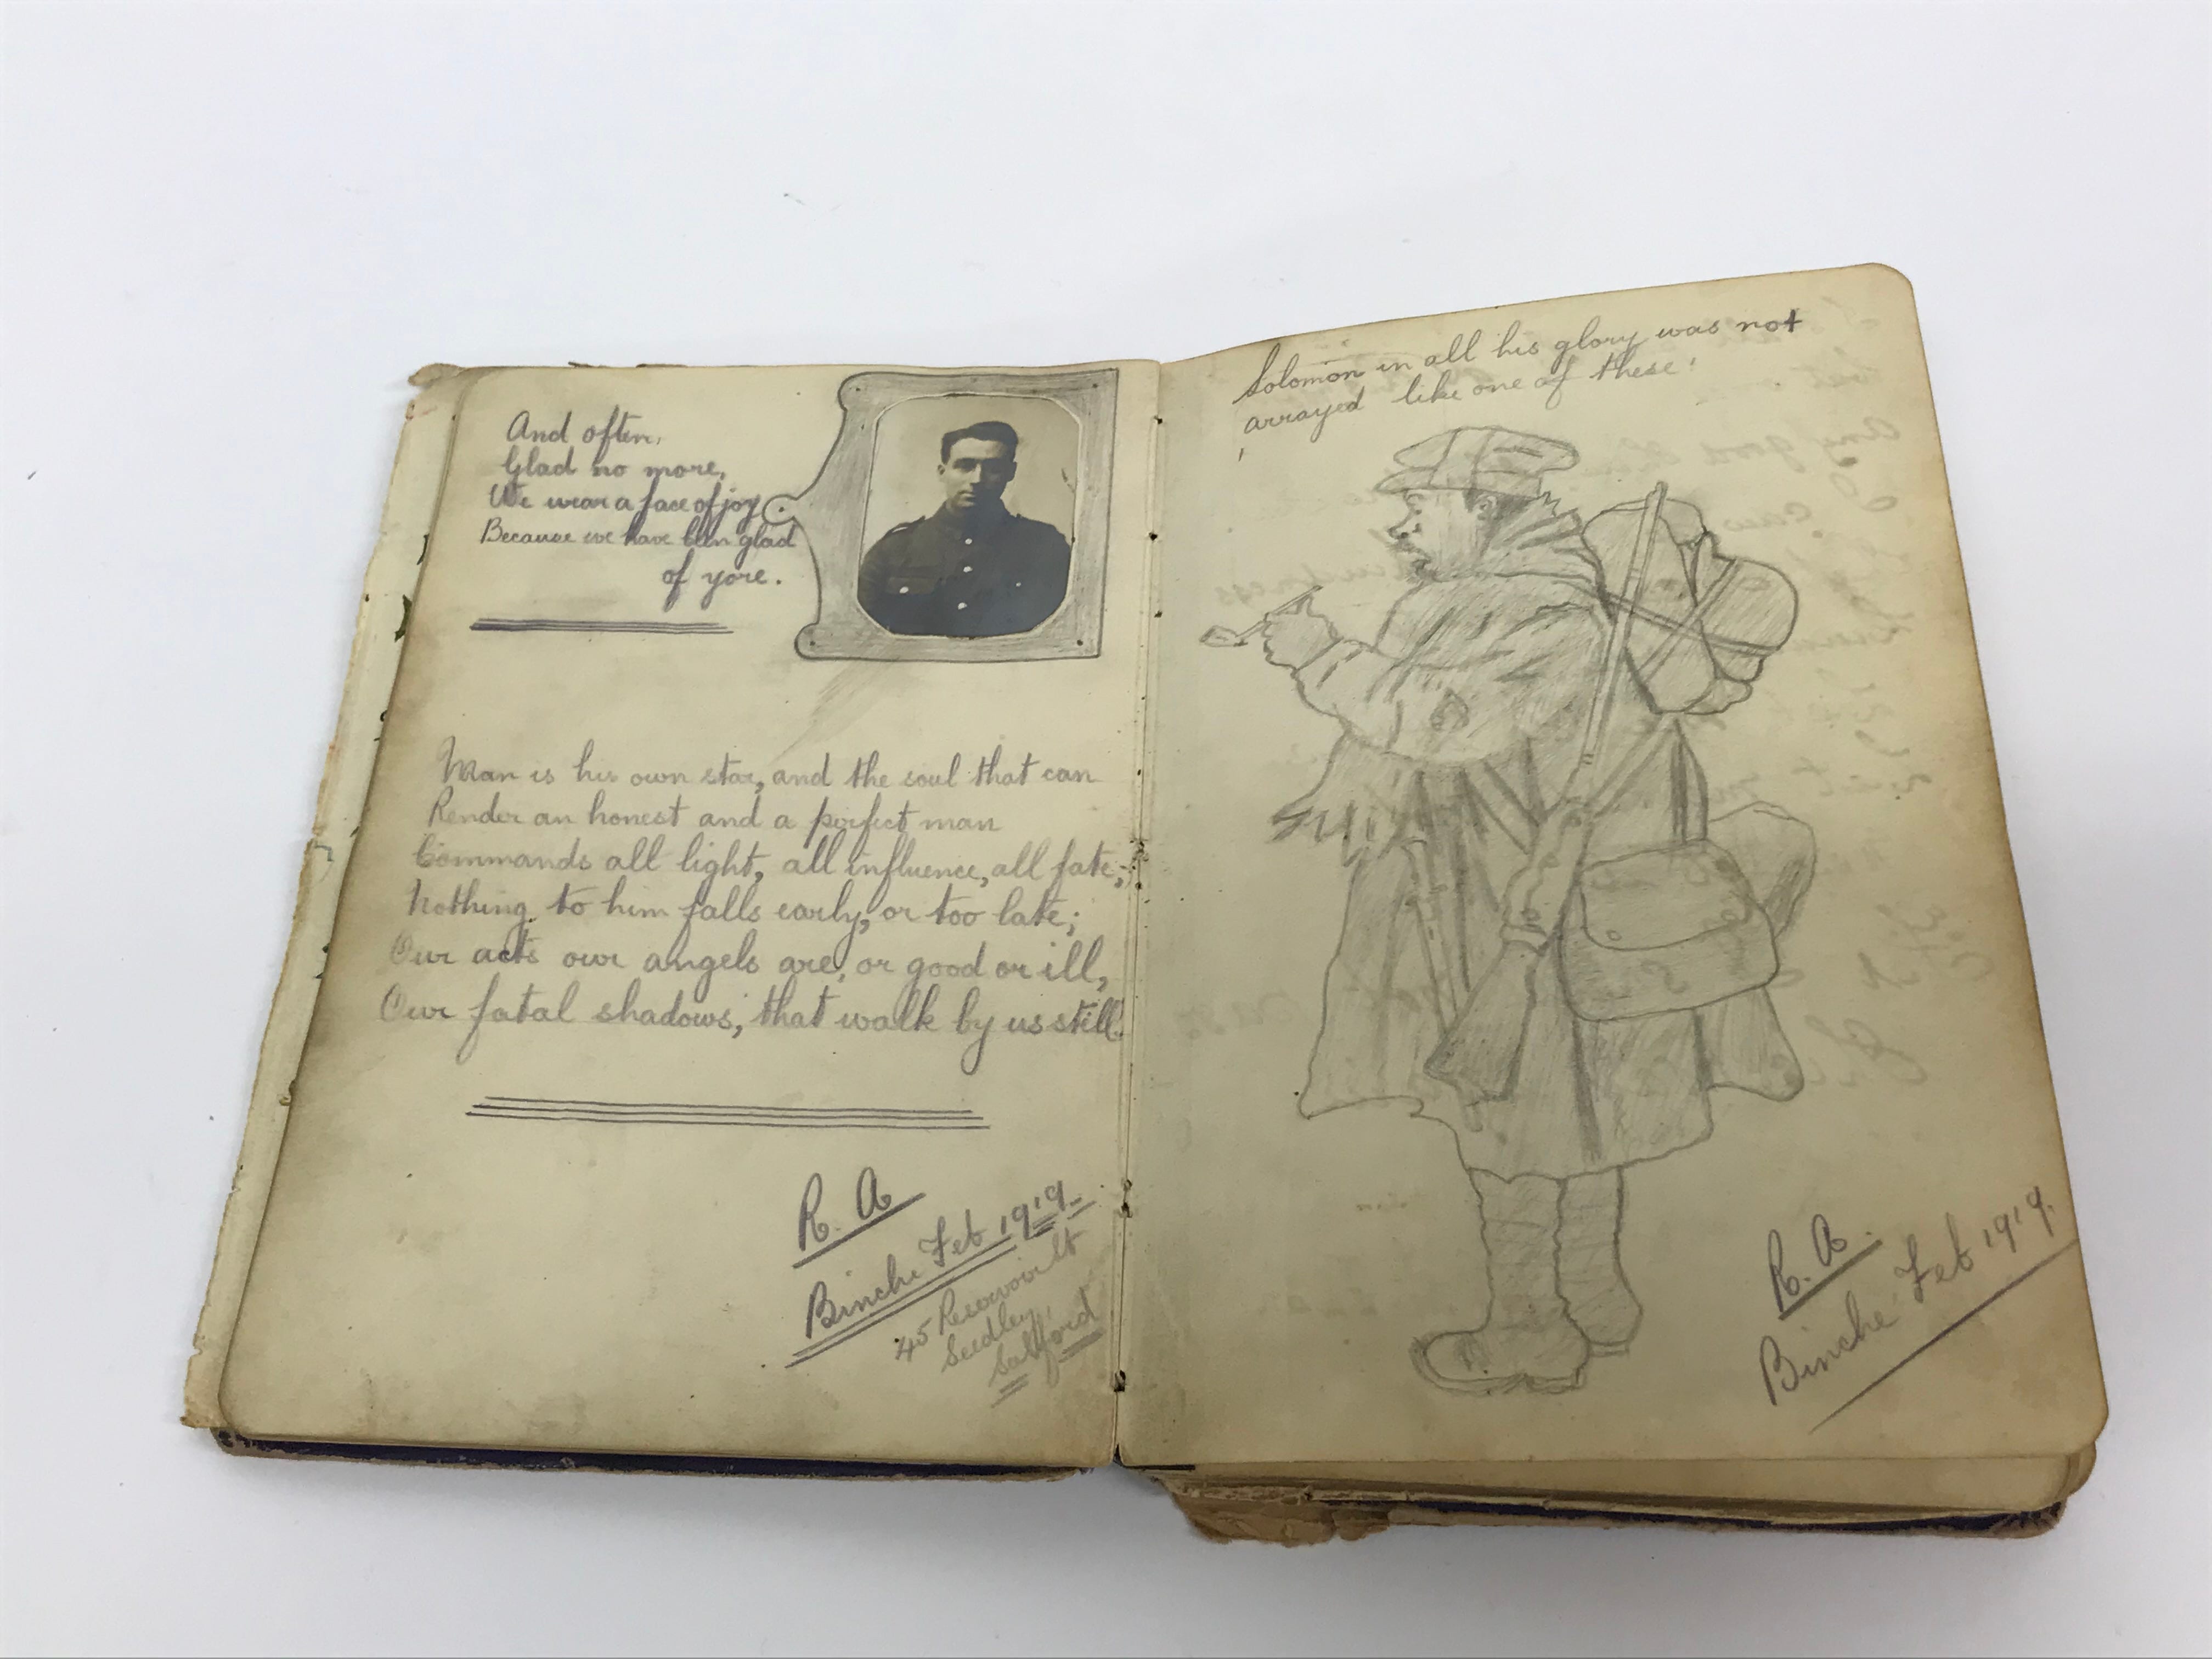 And often,
Glad no more,
We wear a face of joy
Because we have been glad
of yore.
Man is his own star, and the soul that can
Render an honest and a perfect man
Commands all light, all influence, all fate,
Nothing to him falls early, or too late;
Our acts our angels are, or good or ill,
Our fatal shadows, that walk by us still.
R. A
Binche Feb 1919
45 Reservoir St
Seedley,
Salford
Solomon in all his glory was not
arrayed like one of these!
R. A.
Binche Feb 1919.